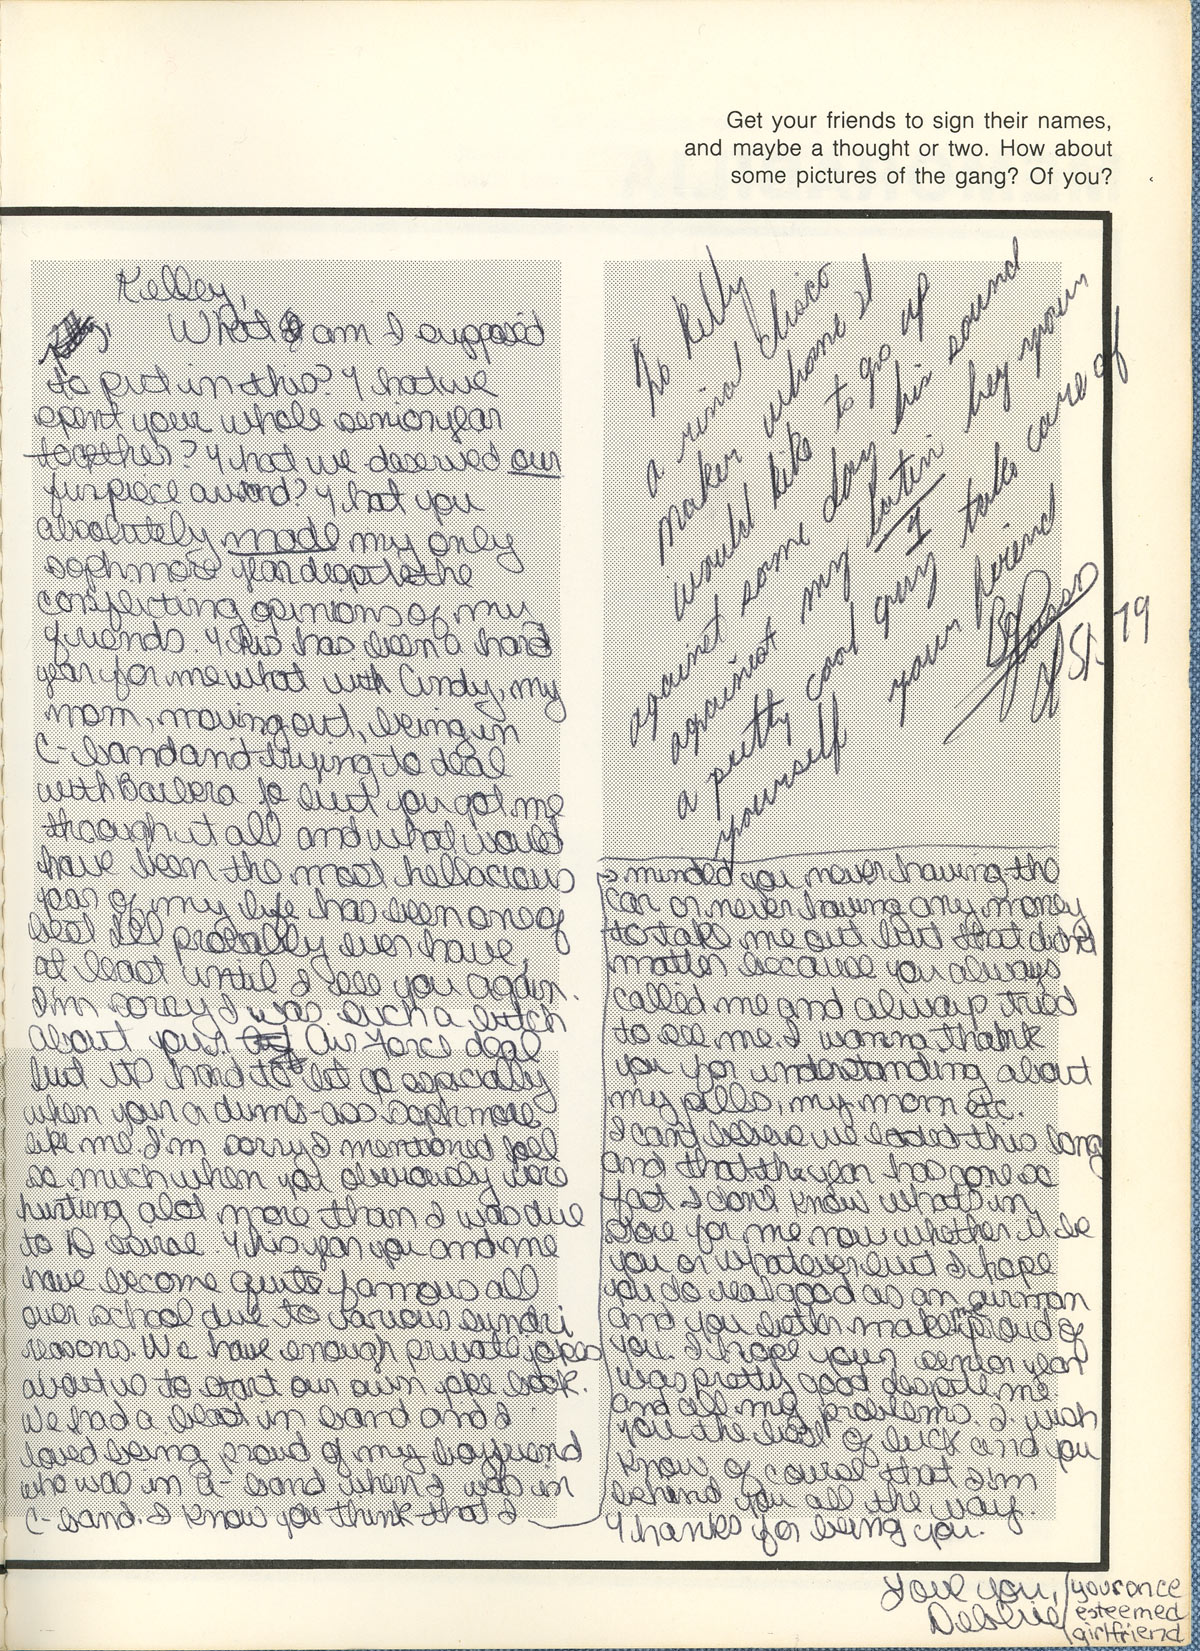 Get your friends to sign their names,
and maybe a thought or two. How about
some pictures of the gang? Of you?
Kelley,
What am I supposed
to put in this? That we've
spent your whole senior year
together? That we deserved our
fur piece award? That you
absolutely made my only
sophmore year despite the
conflicting opinions of my
friends. This has been a hard
year for me what with Cindy, my
mom, moving out, being in
C-band and trying to deal
with Barbera Jo but you got me
through it all and what would
have been the most hellacious
year of my life has been one of
best I'll probally ever have,
at least until I see you again.
I'm sorry I was such a bitch
about your Air Force deal
but it's hard to let go especially
when your a dumb-ass sophmore
like me. I'm sorry I mentioned Joel
so much when you obviously were
hurting alot more than I was due
to D base. This year you and me
have become quite famous all
over school due to various sundri
reasons. We have enough private jokes
about us to start our own joke book.
We had a blast in band and I
loved being proud of my boyfriend
who was in A-band when I was in
C-band. I know you think that I
To Kelly
a rinal disco
maker whome I
would like to go up
against some day his sound
againist my Latin hey your
a pretty cool guy I take care of
yourself your friend
YSL 79
minded you never having the
car or never having any money
to take me out but that didn't
matter because you always
called me and always tried
to see me. I wanna thank
you for understanding about
my pills, my mom etc.
I cant believe we lasted this long
and that the year has gone so
fast I don't know what's in
store for me now whether it be
you or whatever but I hope
you do real good as an airman
and you better make me proud of
you. I hope your senior year
was pretty good despite me
and all my problems. I wish
you the best of luck and you
know of course that I'm
behind you all the way.
Thanks for being you.
Love you,
Debbie
your once
esteemed
girlfriend